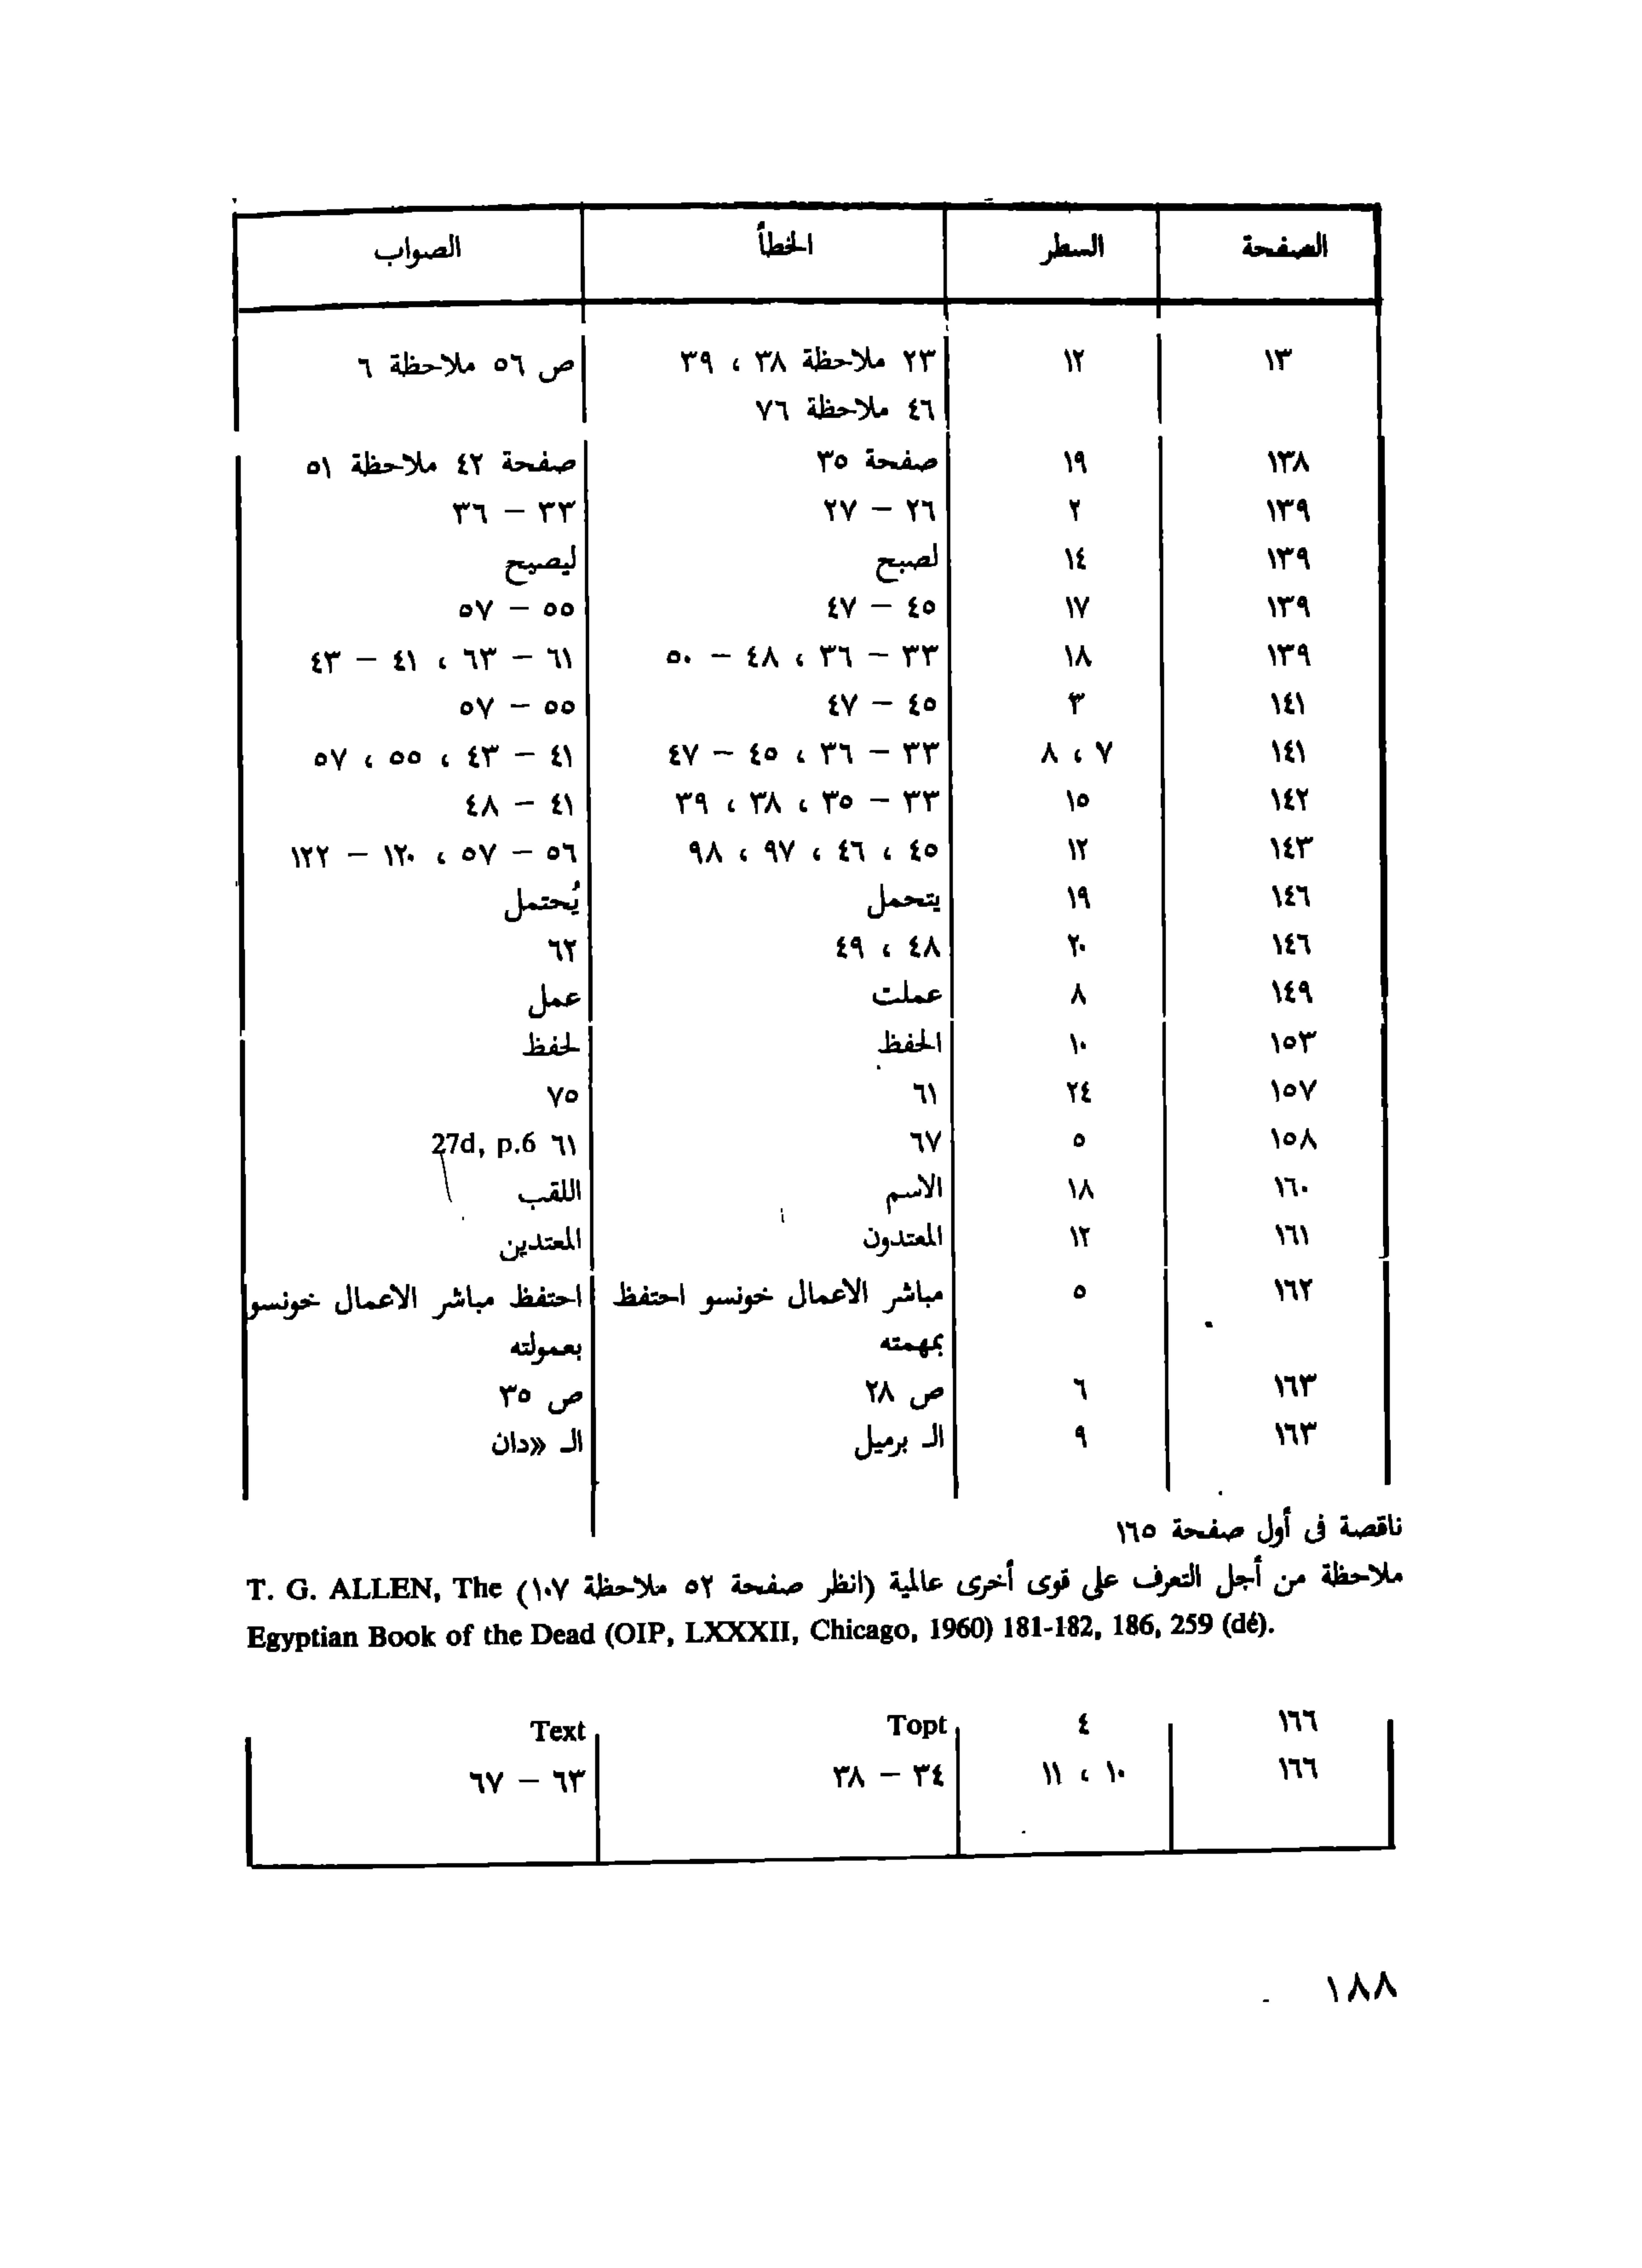 الصفحة السطر الخطأ الصواب
١٣ ١٢ ٢٣ ملاحظة ٣٨ ، ٣٩ ص ٥٦ ملاحظة ٦
٤٦ ملاحظة ٧٦
١٣٨ ١٩ صفحة ٣٥ صفحة ٤٢ ملاحظة ٥١
١٣٩ ٢ ٢٦ – ٢٧ ٣٣ – ٣٦
١٣٩ ١٤ لصبح ليصيح
١٣٩ ١٧ ٤٥ – ٤٧ ٥٥ – ٥٧
١٣٩ ١٨ ٣٣ – ٣٦ ، ٤٨ – ٥٠ ٦١ – ٦٣ ، ٤١ – ٤٣
١٤١ ٣ ٤٥ – ٤٧ ٥٥ – ٥٧
١٤١ ٧ ، ٨ ٣٣ – ٣٦ ، ٤٥ – ٤٧ ٤١ – ٤٣ ، ٥٥ ، ٥٧
١٤٢ ١٥ ٣٣ – ٣٥ ، ٣٨ ، ٣٩ ٤١ – ٤٨
١٤٣ ١٢ ٤٥ ، ٤٦ ، ٩٧ ، ٩٨ ٥٦ – ٥٧ ، ١٢٠ – ١٢٢
١٤٦ ١٩ يتحمل يُحتمل
١٤٦ ٢٠ ٤٨ ، ٤٩ ٦٢
١٤٩ ٨ عملت عمل
١٥٣ ١٠ الحفظ لحفظ
١٥٧ ٢٤ ٦١ ٧٥
١٥٨ ٥ ٦٧ ٦١ 27d, p.6
١٦٠ ١٨ الاسم اللقب
١٦١ ١٢ المعتدون المعتدين
١٦٢ ٥ مباشر الاعمال خونسو احتفظ احتفظ مباشر الاعمال خونسو
بمهمته بعمولته
١٦٣ ٦ ص ٢٨ ص ٣٥
١٦٣ ٩ الـ برميل الـ «دان
ناقصة فى أول صفحة ١٦٥
ملاحظة من أجل التعرف على قوى أخرى عالمية (انظر صفحة ٥٢ ملاحظة ١٠٧) T. G. ALLEN, The
Egyptian Book of the Dead (OIP, LXXXII, Chicago, 1960) 181-182, 186, 259 (dé).
١٦٦ ٤ Topt Text
١٦٦ ١٠ ، ١١ ٣٤ – ٣٨ ٦٣ – ٦٧
١٨٨